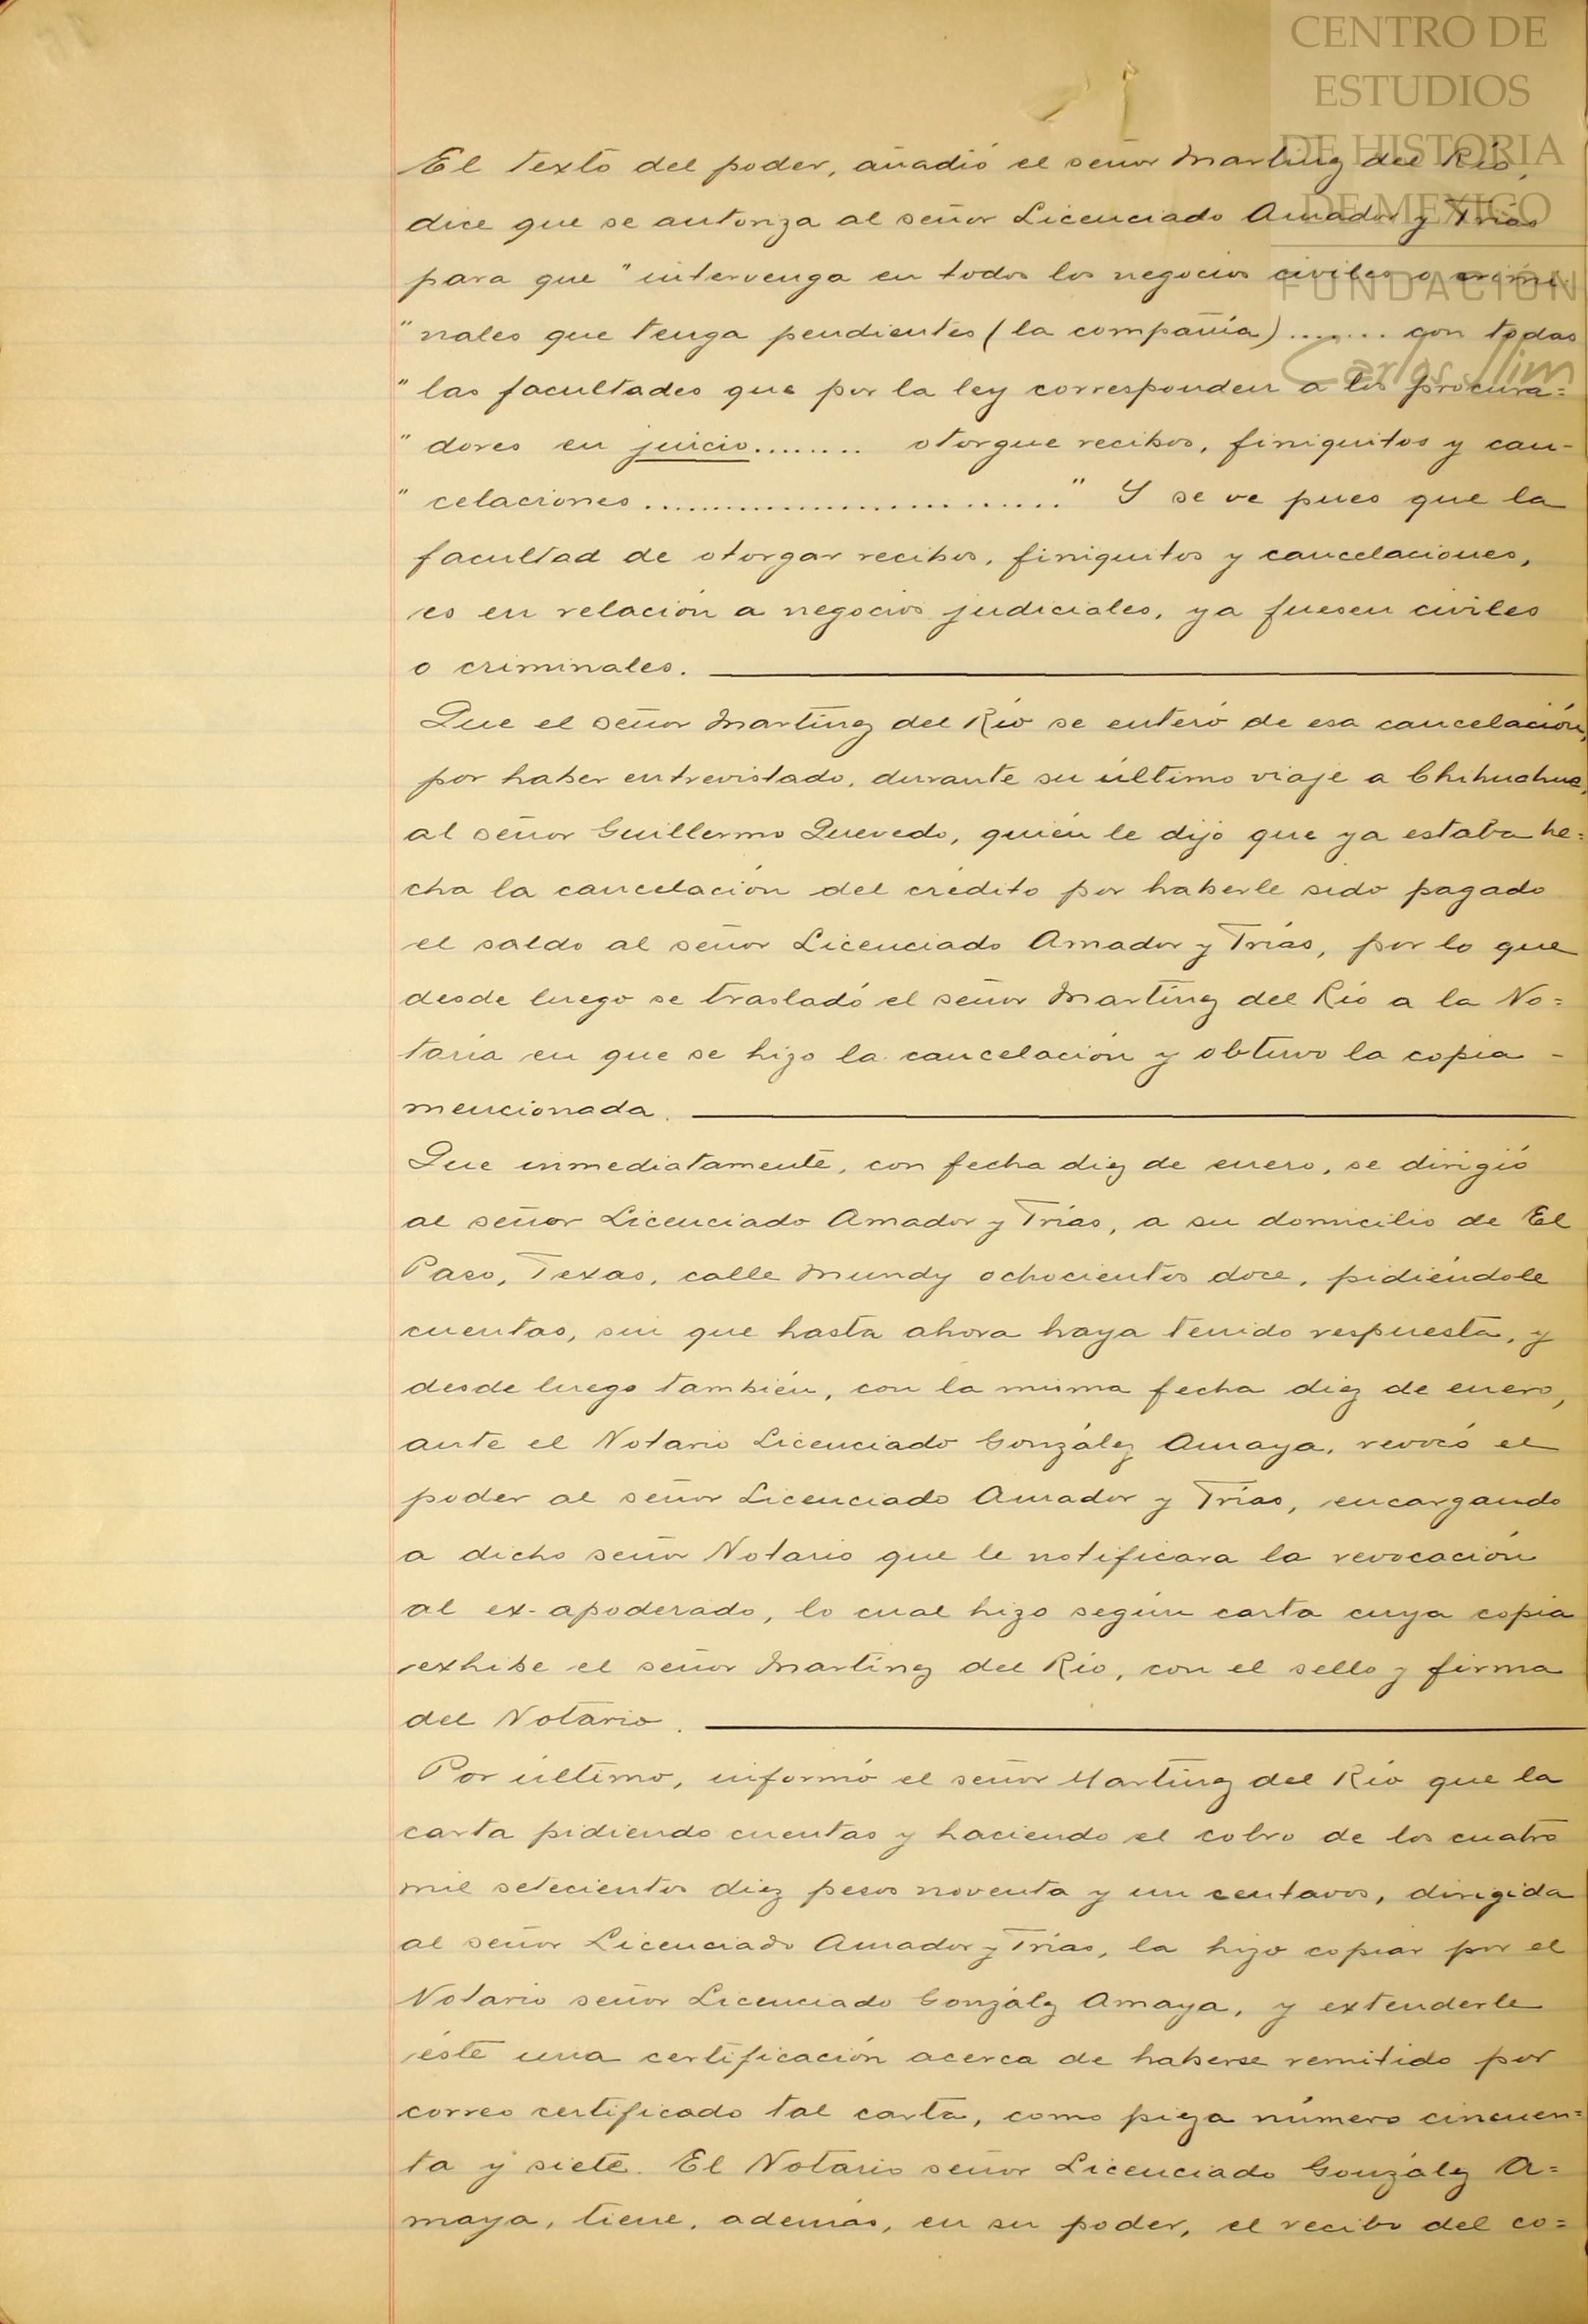 CENTRO DE
ESTUDIOS
DE HISTORIA
DE MEXICO
FUNDACIÓN
Carlos Slim
El texto del poder, añadió el señor Martínz del Río,
dice que se autoriza al señor Licenciado Amador y Trías
para que "intervenga en todos los negocios civiles o crimi-
"nales que tenga pendientes (la compañía)....... con todas
"las facultades que por la ley corresponden a los procura=
"dores en juicio........ otorgue recibos, finiquitos y can-
"celaciones..........................." Y se ve pues que la
facultad de otorgar recibos, finiquitos y cancelaciones,
es en relación a negocios judiciales, ya fuesen civiles
o criminales.
Que el señor Martínz del Río se enteró de esa cancelación,
por haber entrevistado, durante su último viaje a Chihuahua,
al señor Guillermo Quevedo, quién le dijo que ya estaba he=
cha la cancelación del crédito por haberle sido pagado
el saldo al señor Licenciado Amador y Trías, por lo que
desde luego se trasladó el señor Martínz del Río a la No=
taría en que se hizo la cancelación y obtuvo la copia -
mencionada.
Que inmediatamente, con fecha diez de enero, se dirigió
al señor Licenciado Amador y Trías, a su domicilio de El
Paso, Texas, calle Mundy ochocientos doce, pidiéndole
cuentas, sin que hasta ahora haya tenido respuesta, y
desde luego también, con la misma fecha diez de enero,
ante el Notario Licenciado Gonzálz Amaya, revocó el
poder al señor Licenciado Amador y Trías, encargando
a dicho señor Notario que le notificara la revocación
al ex-apoderado, lo cual hizo según carta cuya copia
exhibe el señor Martínz del Río, con el sello y firma
del Notario.
Por último, informó el señor Martínz del Río que la
carta pidiendo cuentas y haciendo el cobro de los cuatro
mil setecientos diez pesos noventa y un centavos, dirigida
al señor Licenciado Amador y Trías, la hizo copiar por el
Notario señor Licenciado Gonzálz Amaya, y extenderle
éste una certificación acerca de haberse remitido por
correo certificado tal carta, como pieza número cincuen=
ta y siete. El Notario señor Licenciado Gonzálz A=
maya, tiene, además, en su poder, el recibo del co=